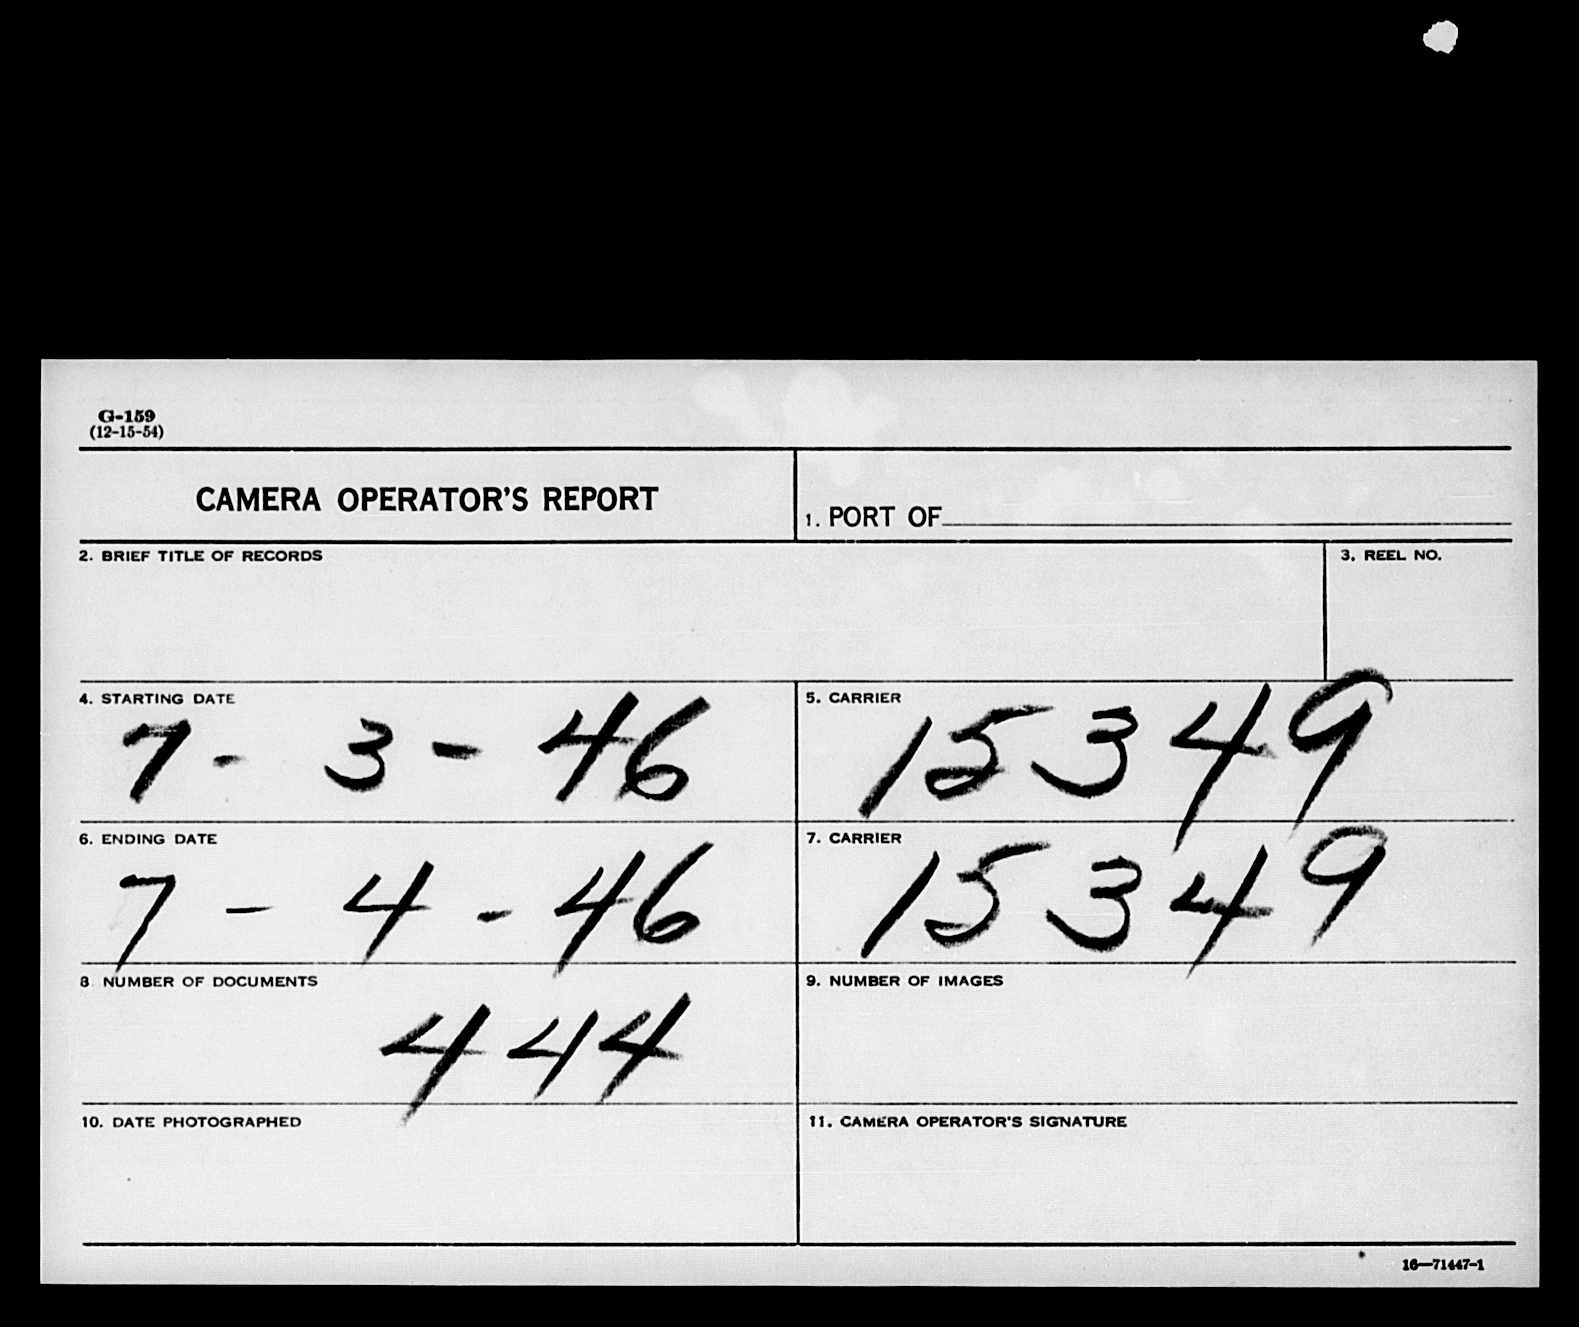 G-159
(12-15-54)
CAMERA OPERATOR'S REPORT
1. PORT OF
2. BRIEF TITLE OF RECORDS
3. REEL NO.
4. STARTING DATE
7 - 3 - 46
5. CARRIER
15349
6. ENDING DATE
7 - 4 - 46
7. CARRIER
15349
8 NUMBER OF DOCUMENTS
444
9. NUMBER OF IMAGES
10. DATE PHOTOGRAPHED
11. CAMERA OPERATOR'S SIGNATURE
16—71447-1